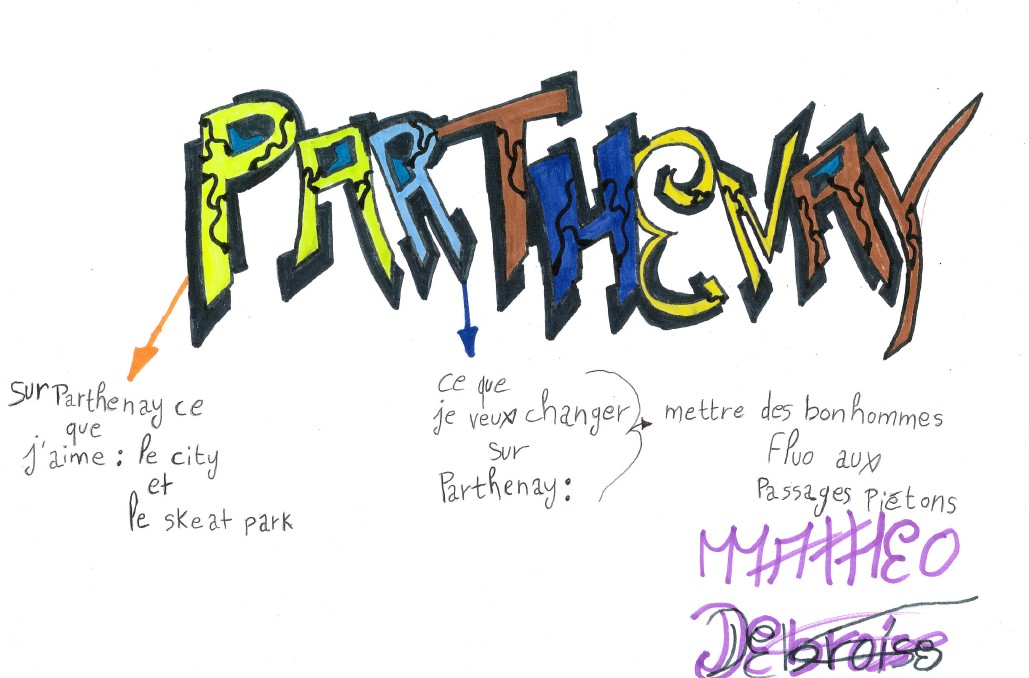 PARTHENAY
sur Parthenay ce
que
j'aime : le city
et
le skeat park
ce que
je veux changer
sur
Parthenay :
mettre des bonhommes
Fluo aux
Passages Piétons
MATHEO
Debroise